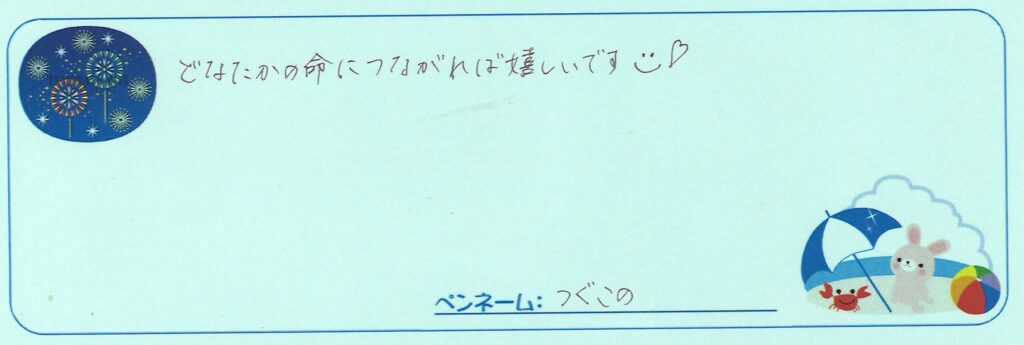 どなたかの命につながれば嬉しいです
ペンネーム: つぐこの